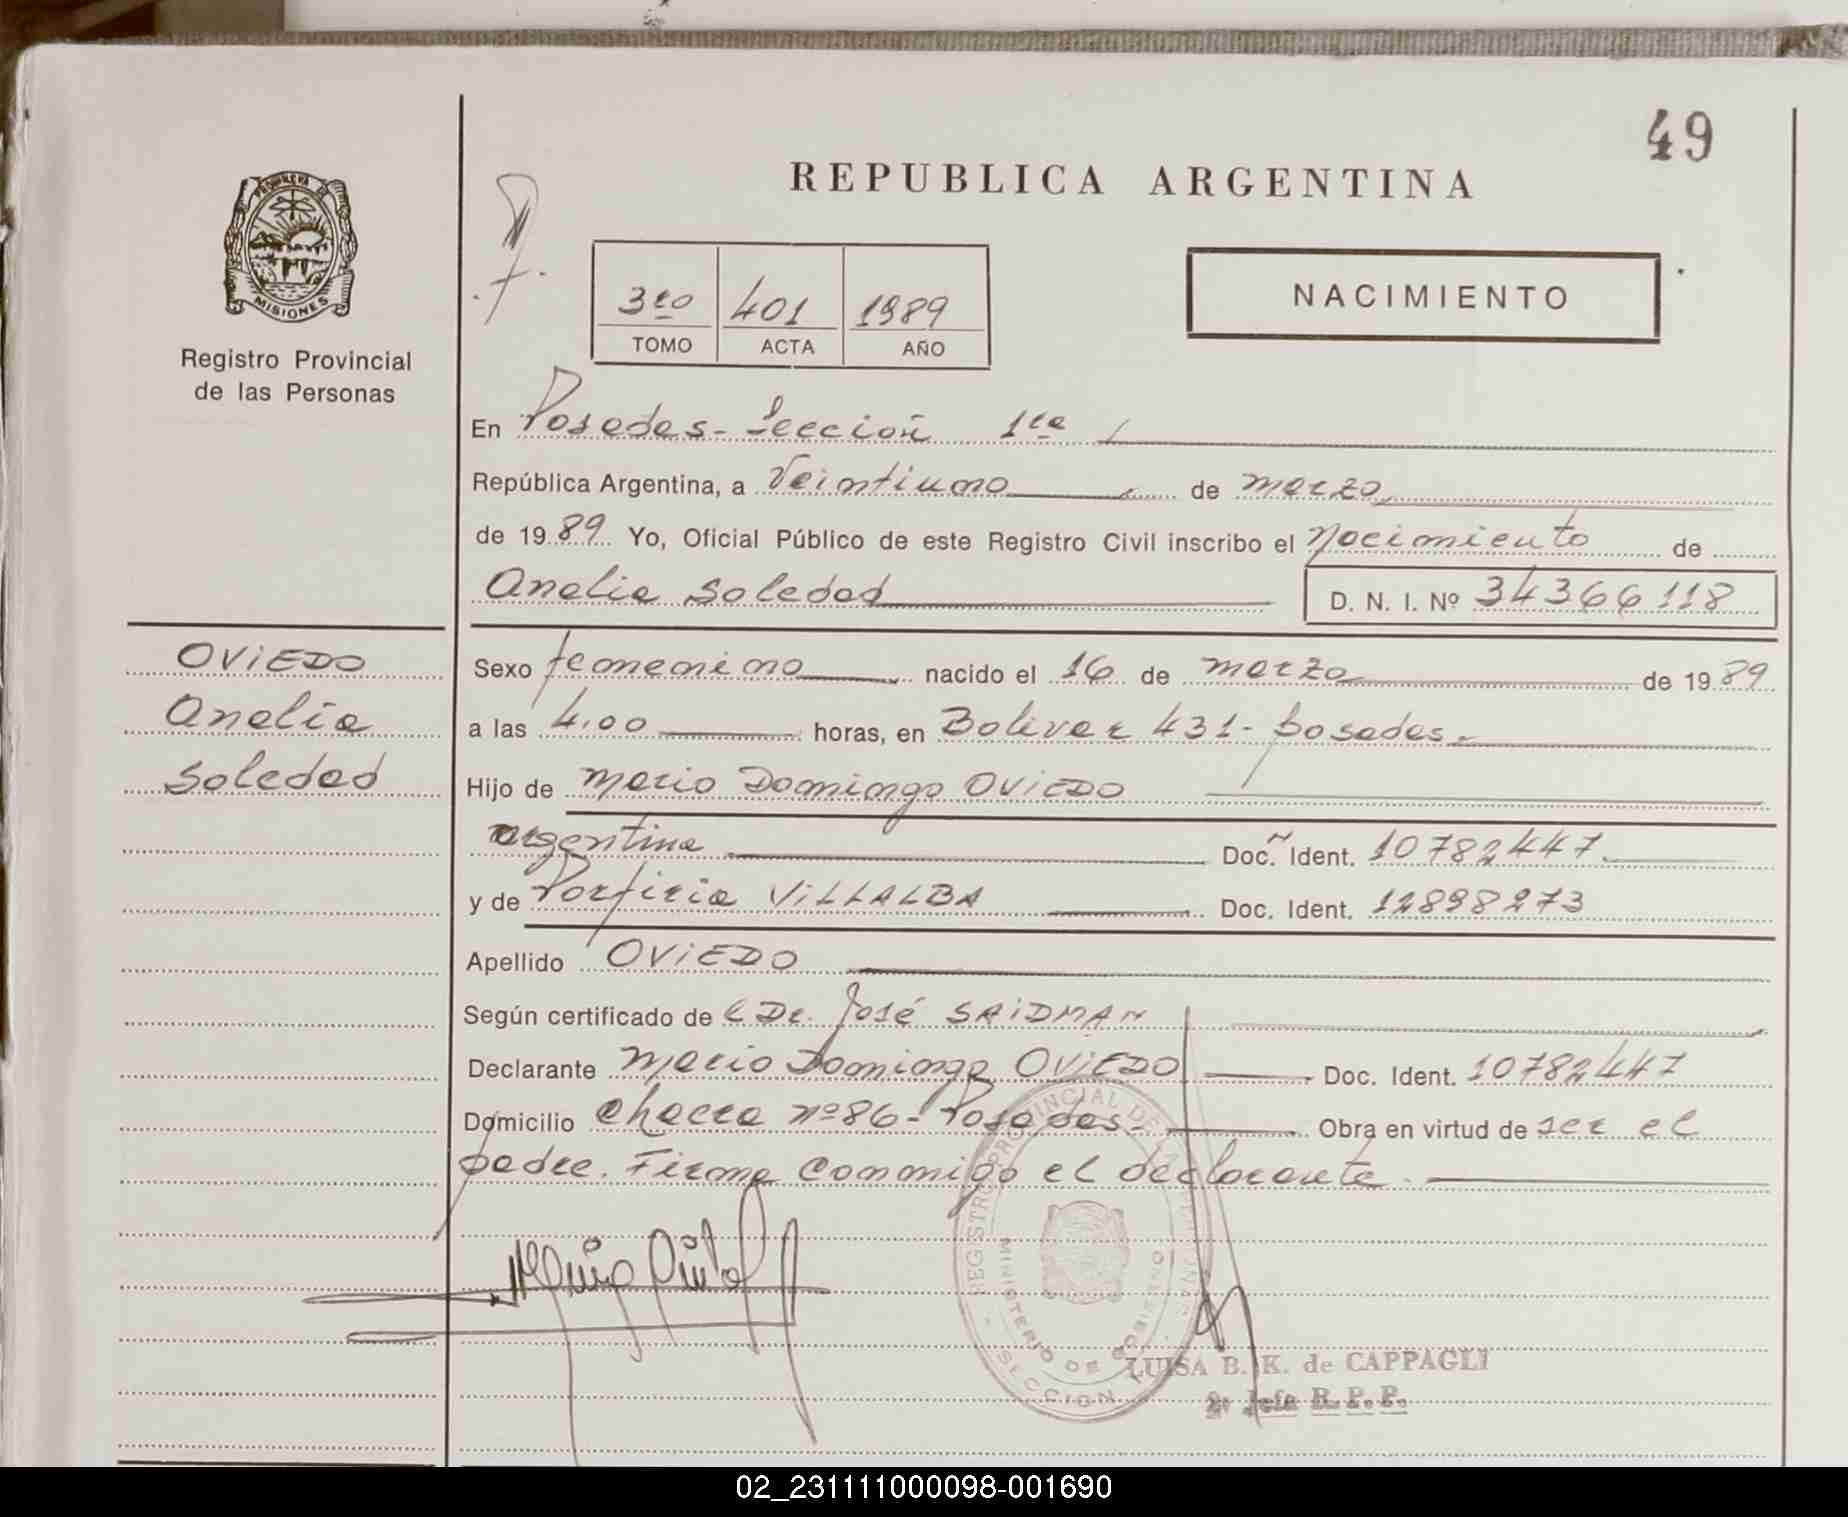 49
REPUBLICA ARGENTINA
PROVINCIA DE
MISIONES
Registro Provincial
de las Personas
3ro 401 1989
TOMO ACTA AÑO
NACIMIENTO
En Posadas - Sección 1ra
República Argentina, a Veintiuno de marzo
de 1989 Yo, Oficial Público de este Registro Civil inscribo el Nacimiento de
Analia Soledad D. N. I. Nº 34366118
OVIEDO
Analia
Soledad
Sexo femenino nacido el 16 de marzo de 1989
a las 4,00 horas, en Bolivar 431 - Posadas.
Hijo de Mario Domingo OVIEDO
argentina Doc. Ident. 10782447.
y de Porfiria VILLALBA Doc. Ident. 12898273
Apellido OVIEDO
Según certificado de l Dr. José SAIDMAN
Declarante Mario Domingo OVIEDO Doc. Ident. 10782447
Domicilio Chacra nº 86 - Posadas. Obra en virtud de ser el
padre. Firma conmigo el declarante.
REGISTRO PROVINCIAL DE LAS PERSONAS
MINISTERIO DE GOBIERNO
SECCION
LUISA B. K. de CAPPAGLI
2º Jefe R. P. P.
02_231111000098-001690